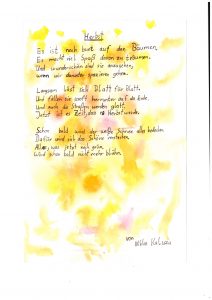 Herbst
Es ist noch bunt auf den Bäumen,
Es macht viel Spaß davon zu träumen.
Und wunderschön sind sie anzusehen,
wenn wir darunter spazieren gehen.
Langsam löst sich Blatt für Blatt,
Und fallen sie sanft herunter auf die Erde.
Und auch die Straßen werden glatt,
Jetzt ist es Zeit, dass es Herbst werde.
Schon bald wird der weiße Schnee alles bedecken
Dafür wird sich das Schöne verstecken.
Alles, was jetzt noch grün,
Wird schon bald nicht mehr blühen.
von